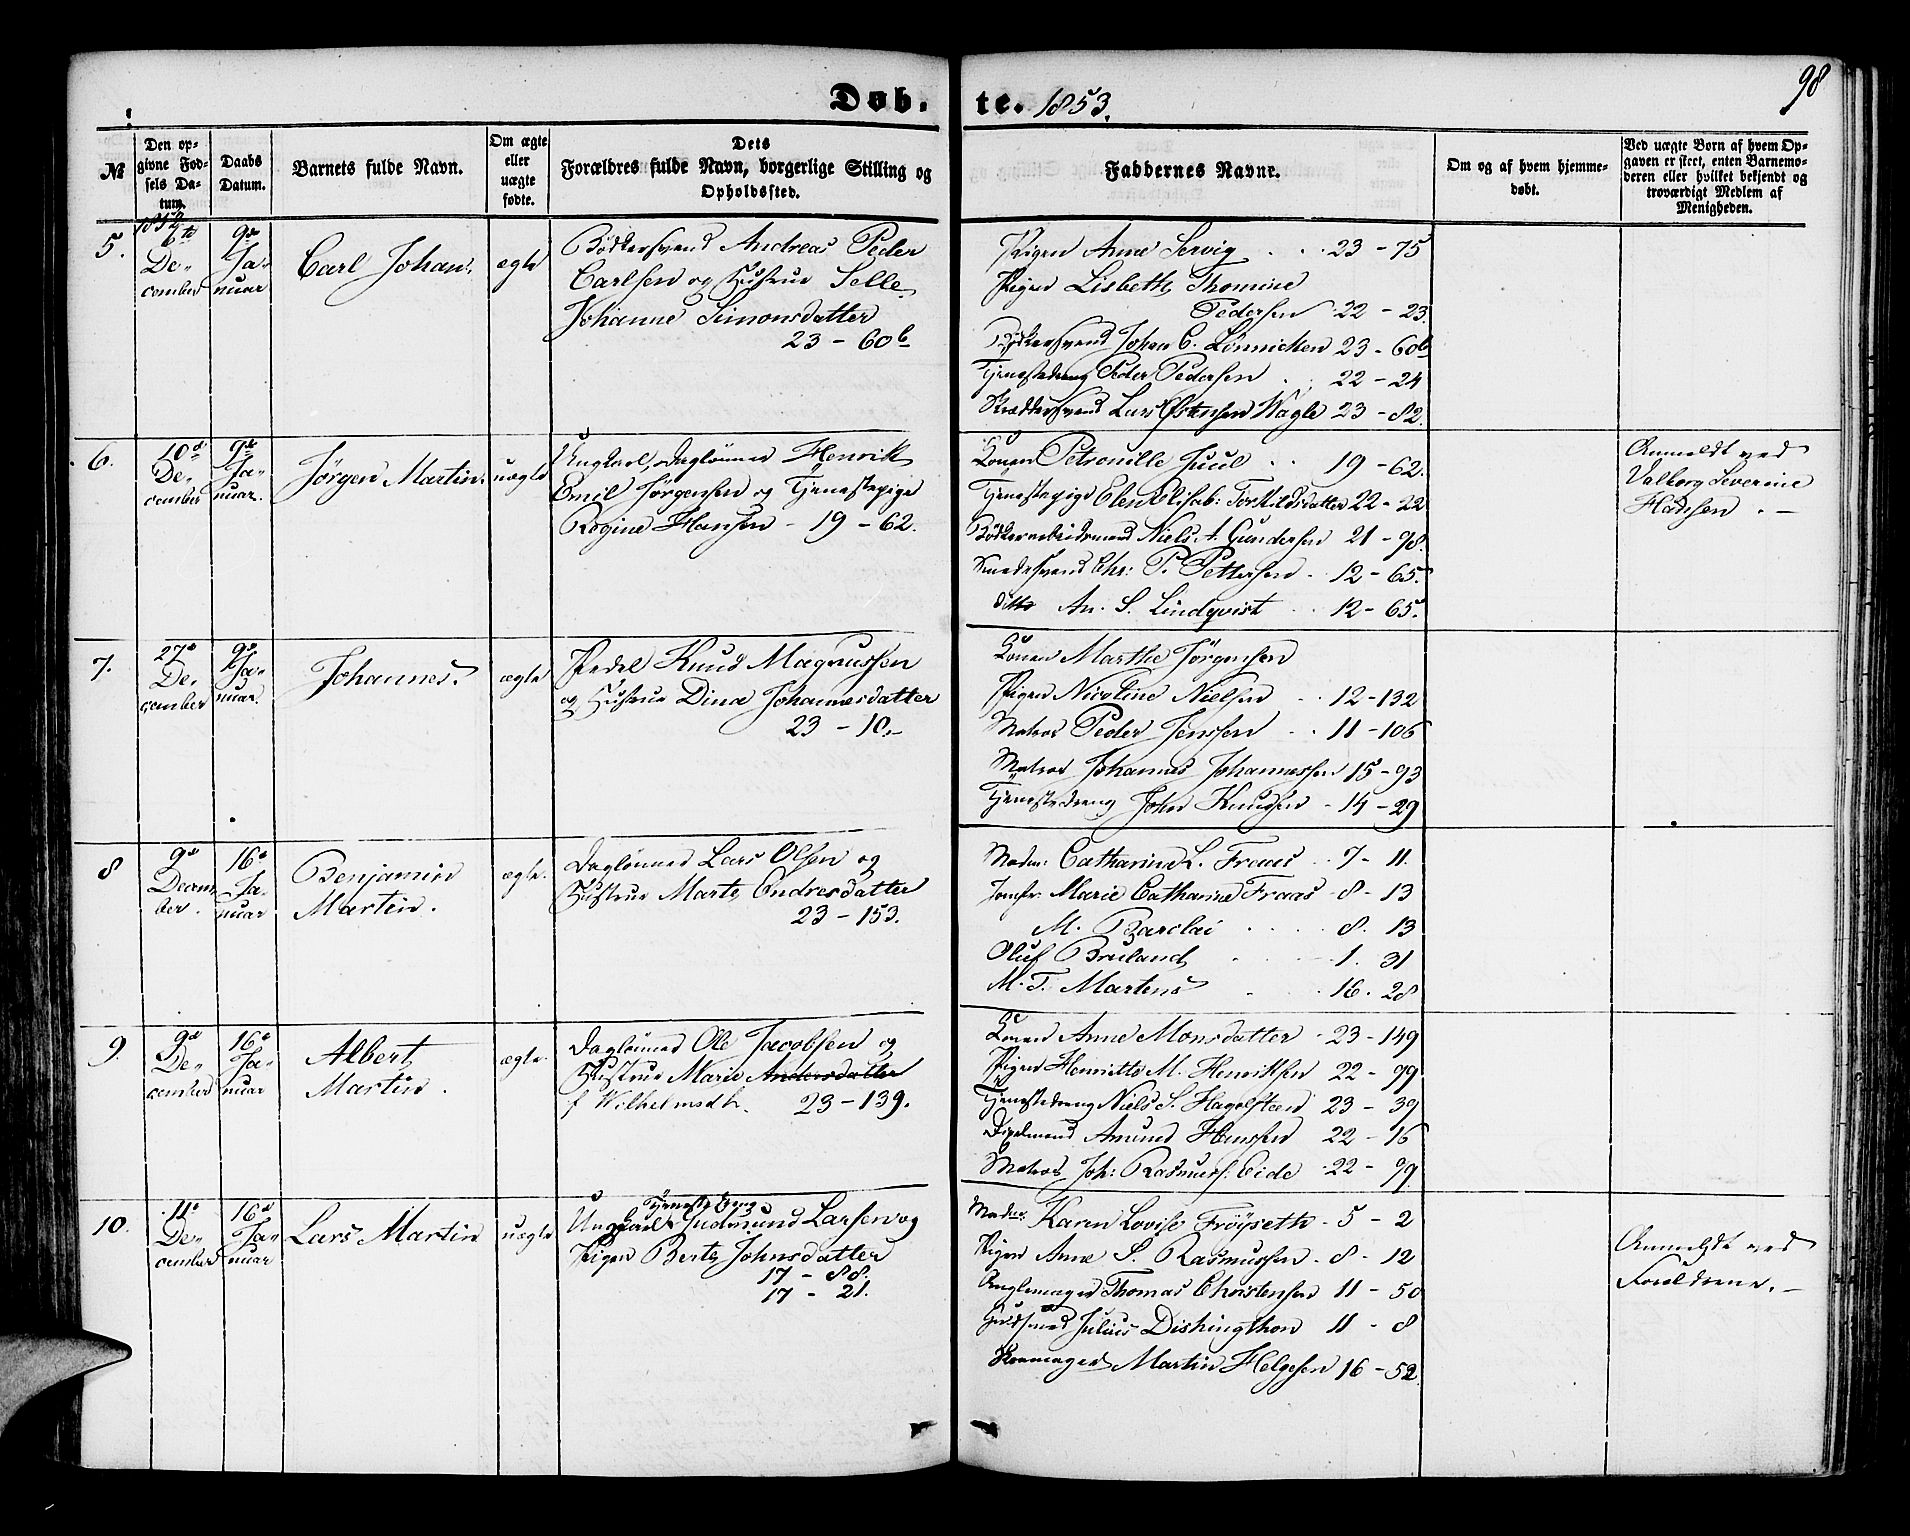 98
Døb- te. 1853.
№
Den op-
givne Fød-
sels Da-
tum.
Daabs
Datum.
Barnets fulde Navn.
Om ægte
eller
uægte
fødte.
Dets
Forældres fulde Navn, borgerlige Stilling og
Opholdssted.
Faddernes Navne.
Om og af hvem hjemme-
døbt.
Ved uægte Børn af hvem Op-
gaven er skeet, enten Barnemo-
deren eller hvilket bekjendt og
troværdigt Medlem af
Menigheden.
1852
5.
6te
De-
cember
9de
Ja-
nuar
Carl Johan,
ægte
Bødkersvend Andreas Peder
Carlsen og Hustrue Selle
Johanne Simonsdatter
23 - 60b
Pigen Anne Servig . . . 23 - 75
Pigen Lisbeth Thomine
Pedersen 22 - 23.
Bødkersvend Johan C. Lönnicken 23 - 60b
Tjenestedreng Peder Pedersen . . 22 - 24
Skræddersvend Lars Østensen Wagle 23 - 82.
6.
10de
De-
cember
9de
Ja-
nuar.
Jørgen Martin.
uægte
Ungkarl, Daglønner Henrik
Emil Jørgensen og Tjenestepige
Regine Hansen - 19 - 62.
Konen Petronille Juul . . 19 - 62.
Tjenestepige Elen Elisab: Torkildsdatter 22 - 22
Bødkerarbeidsmand Niels A. Gundersen 21 - 78.
Smedesvend Chr: P. Pettersen . 12 - 65.
ditto An. S. Lindqvist . . 12 - 65.
Anmeldt ved
Valborg Severine
Hansen . -
7.
27de
De-
cember
9de
Ja-
nuar.
Johannes.
ægte
Pedel Knud Magnussen
og Hustrue Dina Johannesdatter
23 - 10.-
Konen Marthe Jørgensen
Pigen Nicoline Nielsen . . 12 - 132
Matros Peder Jenssen . . 11 - 106
Matros Johannes Johannessen 15 - 93
Tjenestedreng John Knudsen - 14 - 29
8
9de
Decem-
ber.
16de
Ja-
nuar
Benjamin
Martin.
ægte.
Daglønner Lars Olsen og
Hustrue Marte Endresdatter
23 - 153.
Madm: Catharine L. Fraas . . 7 - 11.
Jomfr: Marie Catharine Fraas 8 - 13
M. Barclai . . . . 8. 13
Oluf Bruland . . . 1. 31
M. T. Martens . . . 16. 28
9.
9de
De-
cember
16de
Ja-
nuar
Albert
Martin.
ægte.
Daglønner Ole Jacobsen og
Hustrue Marie Andersdatter
f Wilhelmsdtr. 23 - 139.
Konen Anne Monsdatter . 23 - 149
Pigen Henriette M. Henriksen 22 - 99
Tjenestedreng Niels S. Hagelsteen 23 - 39
Amund Hanssen 22 - 16
Matros Joh: Rasmuss: Eide . 22 - 99
10.
11te
De-
cember
16de
Ja-
nuar
Lars Martin
uægte
Tjenestedreng
Ungkarl Gudmund Larsen og
Pigen Berte Johnsdatter
17 - 88.
17 - 21.
Madm: Karen Lovise Fröyseth . 5 - 2
Pigen Anne S. Rasmussen . 8 - 12
Thomas Christensen 11 - 50
Guldsmed Julius Diskingthon 11 - 8
Skomager Martin Helgesen 16 - 52
Anmeldt ved
Forældrene. -